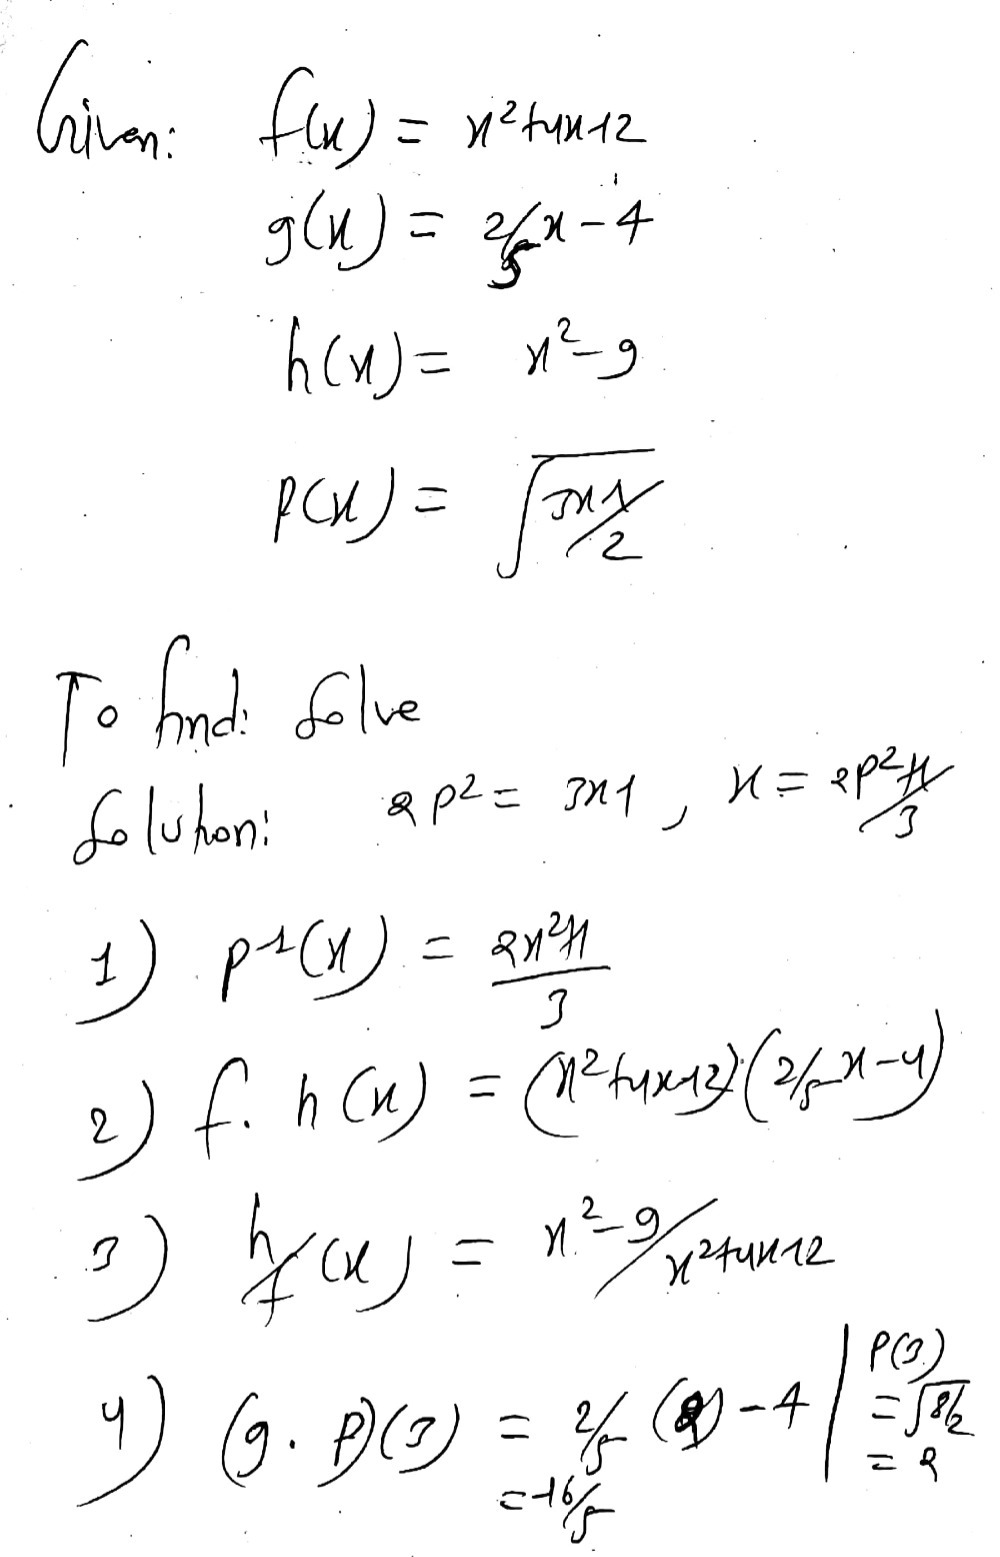 Given: f(x) = x²+4x-12
g(x) = 2/5 x - 4
h(x) = x²-9
p(x) = √3x-1/2
To find: Solve
Solution: 2p² = 3x-1, x = 2p²+1/3
1) p-1(x) = 2x²+1/3
2) f. h(x) = (x²+4x-12)(2/5 x-4)
3) h/f(x) = x²-9/x²+4x-12
4) (g. p)(3) = 2/5 (2) - 4 | p(3)
= √8/2
= -16/5 = 2